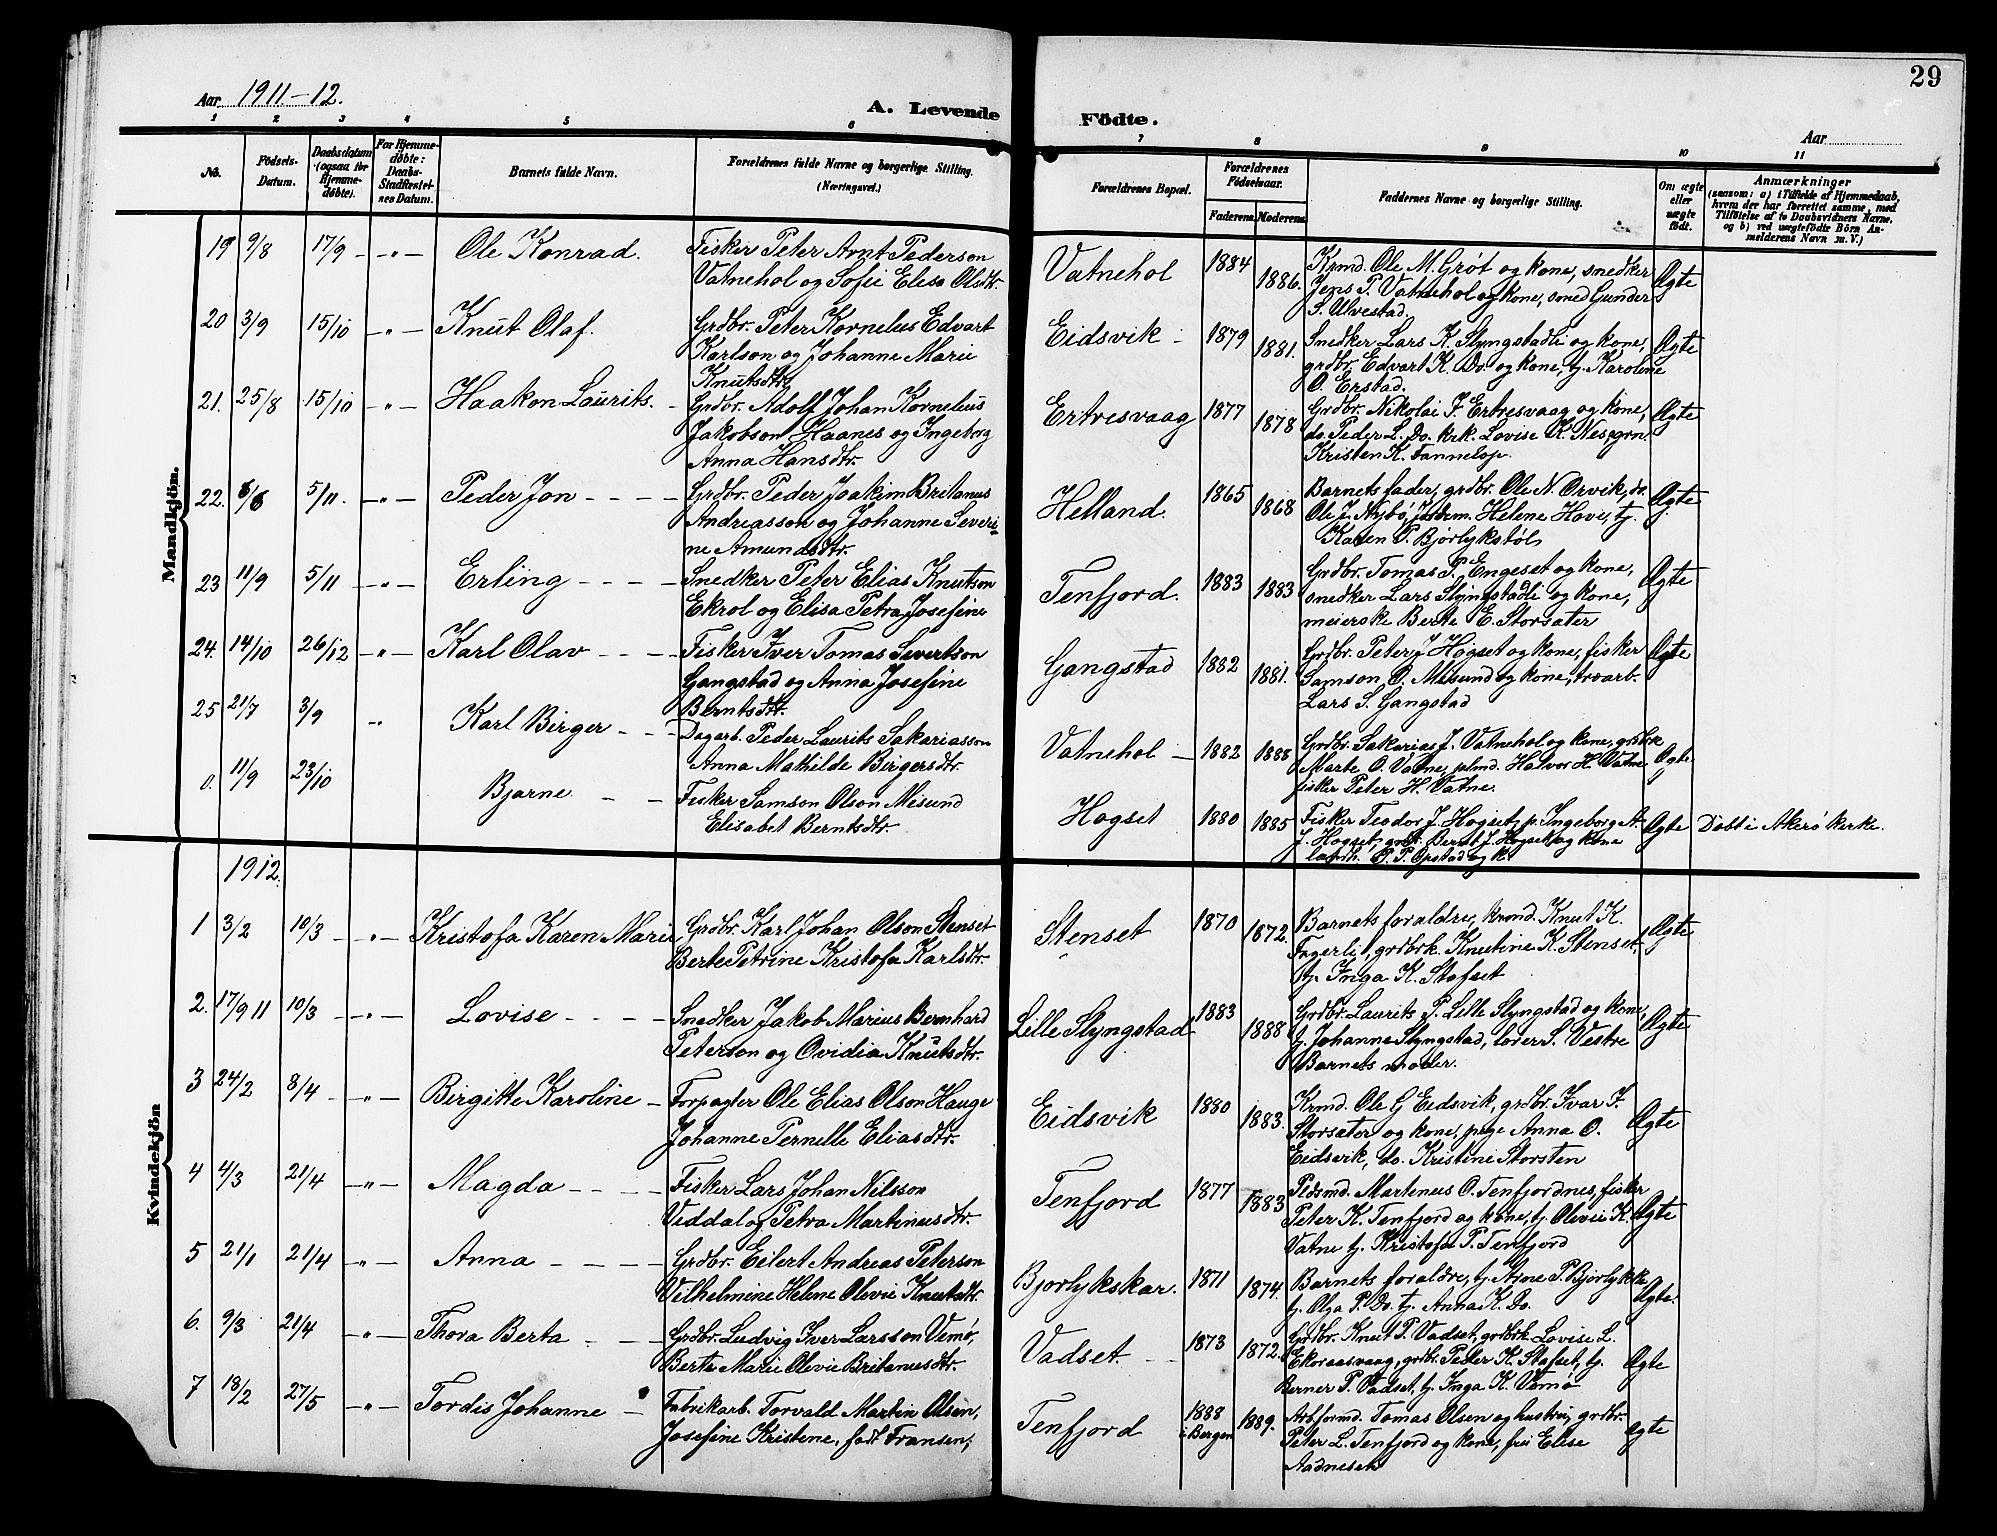 29
Aar 1911-12.
A. Levende Födte.
Aar
1 2 3 4 5 6 7 8 9 10 11
No.
Födsels-Datum.
Daabsdatum (ogsaa for Hjemmedøbte).
For Hjemmedøbte: Daabs-Stadfæstelses Datum.
Barnets fulde Navn.
Forældrenes fulde Navne og borgerlige Stilling. (Næringsvei.)
Forældrenes Bopæl.
Forældrenes Födselsaar.
Faderens. Moderens.
Faddernes Navne og borgerlige Stilling.
Om ægte eller uægte født.
Anmærkninger
(saasom: a) i Tilfælde af Hjemmedaab,
hvem der har forrettet samme, med
Tilföielse af to Daabsvidners Navne,
og b) ved uægtefödte Börn An-
melderens Navn m. V.)
Mandkjön.
19 9/8 17/9 - „ - Ole Konrad. Fisker Peter Arnt Pederson Vatnehol 1884 Krmd. Ole M. Grøt og kone, snedker Ægte
Vatnehol og Sofie Elise Olsdtr. 1886. Jens P. Vatnehol og kone, sned Gunder
S. Ulvestad.
20 3/9 15/10 - „ - Knut Olaf. Grdbr. Peter Kornelius Edvart Eidsvik - 1879 Snedker Lars K. Slyngstadli og kone, Ægte
Karlson og Johanne Marie 1881. grdbr. Edvart K. Do. og kone, tj. Karoline
Knutsdtr. O. Erstad.
21. 25/8 15/10 - „ - Haakon Laurits. - Grdbr. Adolf Johan Kornelius Ertresvaag 1877 Grdbr. Nikolai J. Ertresvaag og kone, Ægte
Jakobson Haanes og Ingeborg 1878 do. Peder L. Do. krk. Lovise K. Nes, grn.
Anna Hansdtr. Kristen K. Tanneløp.
22. 6/6 5/11. - „ - Peder Jon - - - - Grdbr. Peder Joakim Britanus Helland. 1865 Barnets fader, grdbr. Ole N. Orvik, do. Ægte
Andreasson og Johanne Severi- 1868 Ole J. Nybø, Helene Hove, tj.
ne Amundsdtr. Karen P. Bjørlykstøl
23 11/9 5/11 - „ - Erling - - - - Snedker Peter Elias Knutson Tenfjord. 1883 Grdbr. Tomas P. Engeset og kone, Ægte
Ekrol og Elisa Petra Josefine 1883 snedker Lars Slyngstadli og kone,
meierske Berte E. Storsæter
24. 14/10 26/12 - „ - Karl Olav - - - - Fisker Iver Tomas Severtson Gangstad 1882 Grdbr. Peter J Hogset og kone, fisker Ægte
Gangstad og Anna Josefine 1881. Samson O. Misund og kone, troarb.
Berntsdtr. Lars S. Gangstad
25 21/7 3/9 „ Karl Birger - - - Dagarb. Peder Laurits Sakariasson Vatnehol - 1882 1888 Grdbr. Sakarias J. Vatnehol og kone, grdbrk Ægte
Anna Mathilde Birgersdtr. Marte O. Vatne, plmd. Halvor H. Vatne
fisker Peter H. Vatne.
0. 11/9 23/10 Bjarne - - Fisker Samson Olson Misund Hogset 1880 1885 Fisker Teodor J. Hogset, p. Ingeborg A. Ægte Døbt i Akerø kirke.
Elisabet Berntsdtr. J. Hogset, grdbr. Bernt J. Hogset og kone
landh. P. P. Opstad og k.
Kvindekjön
1912.
1 3/2 10/3 - „ - Kristofa Karen Marie Grdbr. Karl Johan Olson Stenset Stenset 1870 Barnets foraldre, krmd. Knut K. Ægte
Berte Petrine Kristofa Karlsdtr. 1872. Fagerli, grdbrk. Knutine K. Stenset,
tj. Inga K. Stafset
2. 17/9 11 10/3 - „ - Lovise - - - - Snedker Jakob Marius Bernhard Lille Slyngstad 1883 Grdbr. Laurits P. Lille Slyngstad og kone, Ægte
Peterson og Ovidia Knutsdtr. 1888 tj. Johanne Slyngstad, lærer S. Vestre
Barnets moder.
3 24/2 8/4 - „ - Birgitte Karoline - Forpagter Ole Elias Olson Hauge Eidsvik 1880 Krmd. Ole G Eidsvik, grdbr. Ivar I. Ægte
Johanne Pernelle Eliasdtr. 1883. Storsæter og kone, pige Anna O.
Eidsvik, do. Kristine Storsten
4 4/3 21/4 - „ - Magda - - - - Fisker Lars Johan Nilsson Tenfjord 1877 Pedsmd. Martinus O. Tenfjordnes, fisker Ægte
Viddal og Petra Martinusdtr. 1883 Peter K. Tenfjord og kone, tj. Olivie K.
Vatne tj. Kristofa P. Tenfjord
5 21/1 21/4 - „ - Anna - - - - Grdbr. Eilert Andreas Peterson Bjorlykskar. 1871 Barnets foraldre, tj. Arne P. Bjørlykke Ægte.
Vilhelmine Helene Olivie Knutsdtr. 1874. tj. Olga P. Do. tj. Anna K. Do.
6. 9/3 21/4 - „ - Thora Berta - - - Grdbr. Ludvig Iver Larsson Vemø, Vadset. - - 1873 Grdbr. Knut P. Vadset, grdbrk. Lovise L. Ægte
Berte Marie Olivie Britanusdtr. 1872. Ekornaasvaag, grdbr. Peder K. Stafset, tj.
Berner P. Vadset, tj. Inga K. Vemø
7 18/2 27/5 - „ - Tordis Johanne - Fabrikarb. Torvald Martin Olsen, Tenfjord 1888 i Bergen 1889. Arb.formd. Tomas Olsen og hustru, grdbr. Ægte
Josefine Kristene, født Fransen, Peter L. Tenfjord og kone, fru Elise
Aadnesen